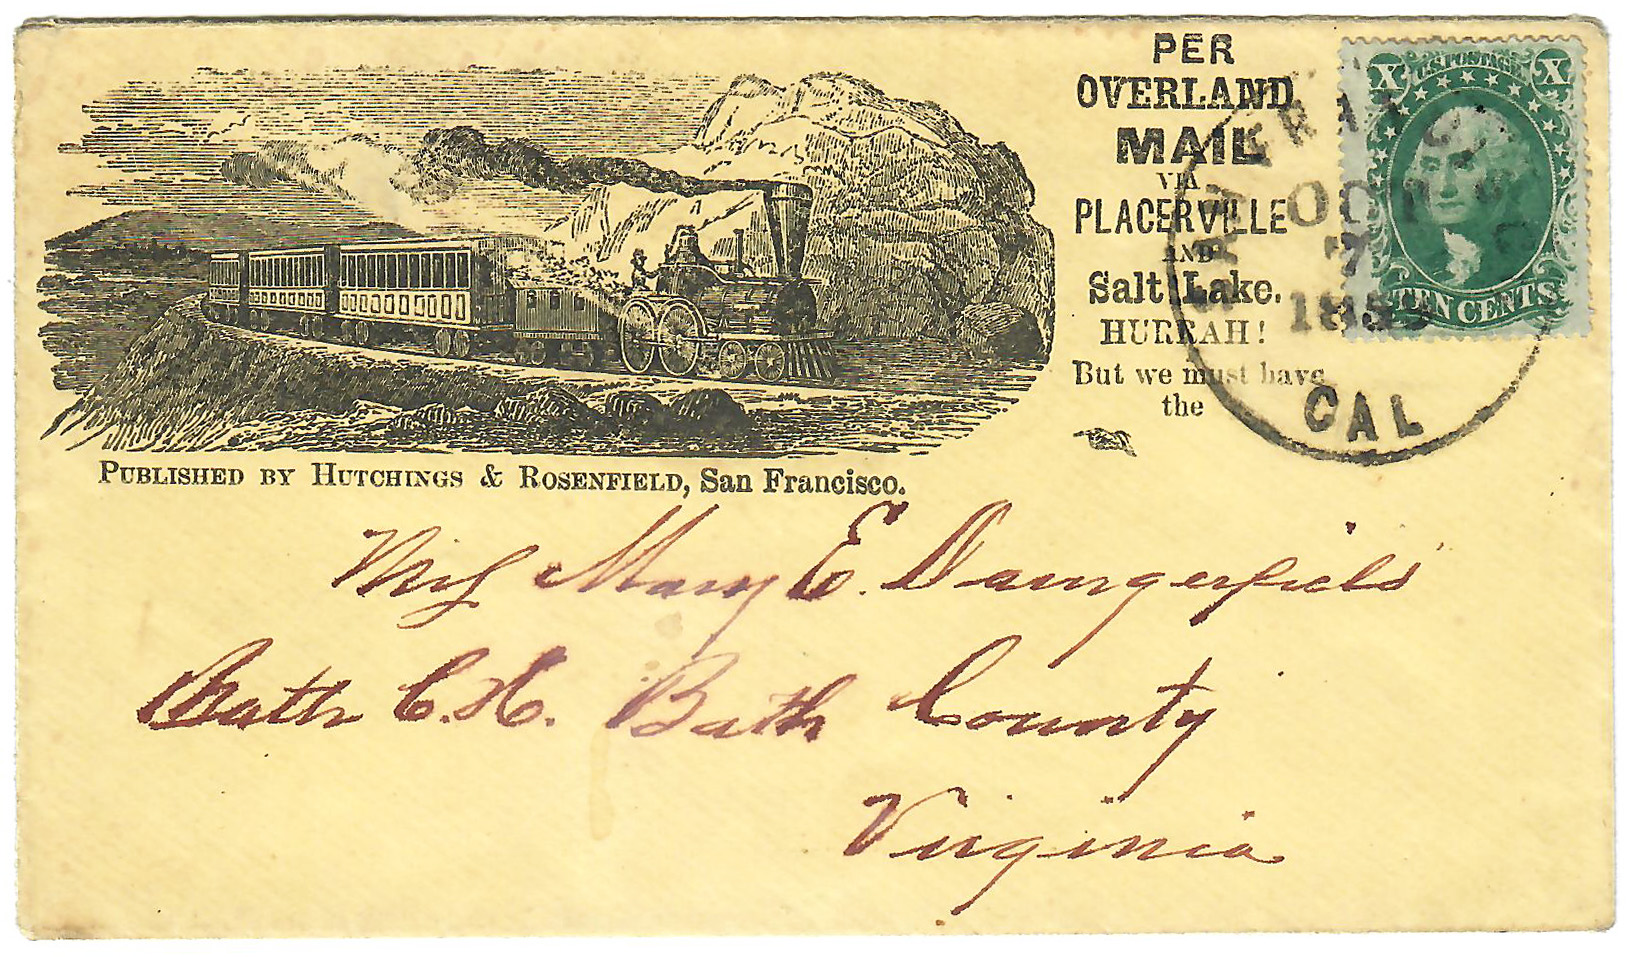 PER
OVERLAND
MAIL
VIA
PLACERVILLE
AND
Salt Lake.
HURRAH!
But we must have
the
X U.S. POSTAGE X
TEN CENTS
OCT
7
1859
CAL
PUBLISHED BY HUTCHINGS & ROSENFIELD, San Francisco.
Miss Mary E. Daingerfield
Bath C.H. Bath County
Virginia